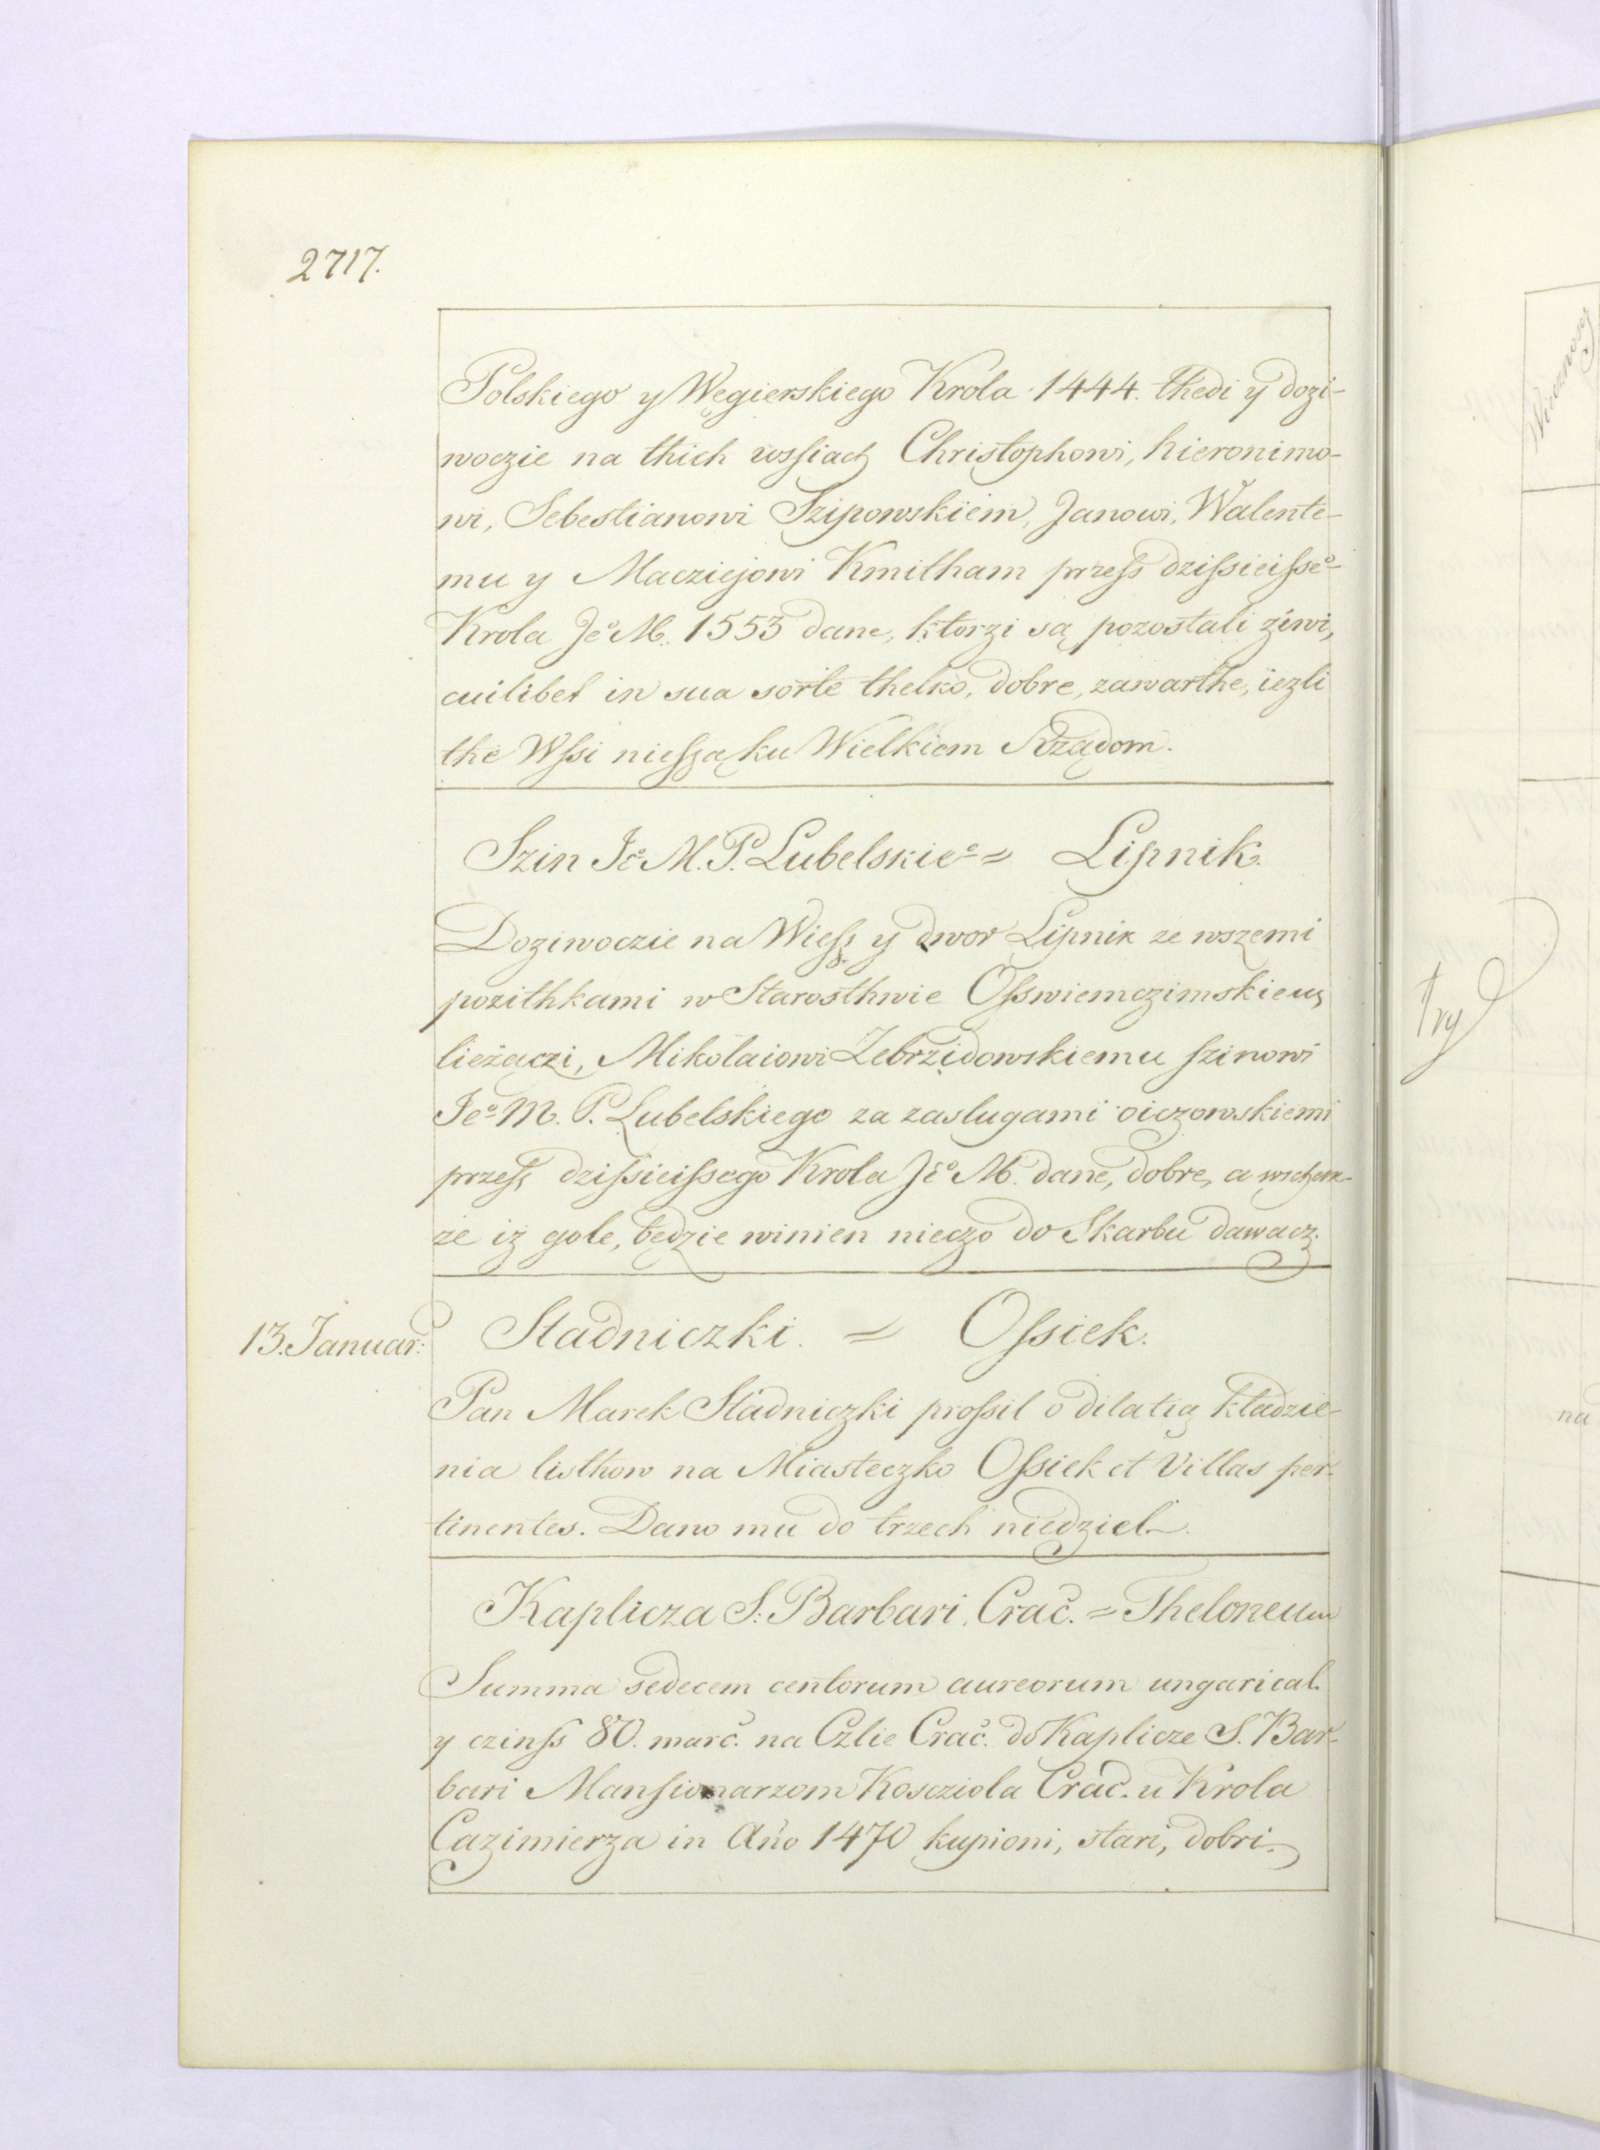 2717.
Polskiego y Węgierskiego Krola 1444. thedi y dozi-
woczie na thich wsſiach Christophowi, hieronimo-
wi, Sebestianowi Szipowskiem, Janowi, Walente-
mu y Macziejowi Kmitham przeſs dziſsieiſseo
Krola Jeo M. 1553 dane, ktorzi są pozostali ziwi,
cuilibet in sua sorte thelko, dobre, zawarthe, iezli
the Wſsi nieſsą ku Wielkiem Rządom.
Szin Jeo M. P. Lubelskieo = Lipnik.
Doziwoczie na Wieſs y dwor Lipnik ze wszemi
pozithkami w Starosthwie Oſswiemczimskiem
lieżączi, Mikolaiowi Zebrzidowskiemu ſzinowi
Jeo M. P. Lubelskiego za zaslugami oiczowskiemi
przeſs dziſsieiſsego Krola Jeo M. dane, dobre, a
ze iz gole, będzie winien nieczo do Skarbu dawacz.
13. Januar:
Stadniczki. = Oſsiek.
Pan Marek Stadniczki proſsil o dilatią kładzie-
nia listhow na Miasteczko Oſsiek et Villas per-
tinentes. Dano mu do trzech niedziel.
Kaplicza S: Barbari Crač. = Theloneum
Summa sedecem centorum aureorum ungarical.
y czinſs 80. marč. na Czlie Crač. do Kaplicze S. Bar-
bari Manſionarzom Koscziola Crač. u Krola
Cazimierza in Ano 1470 kupioni, stari, dobri.
Try
na